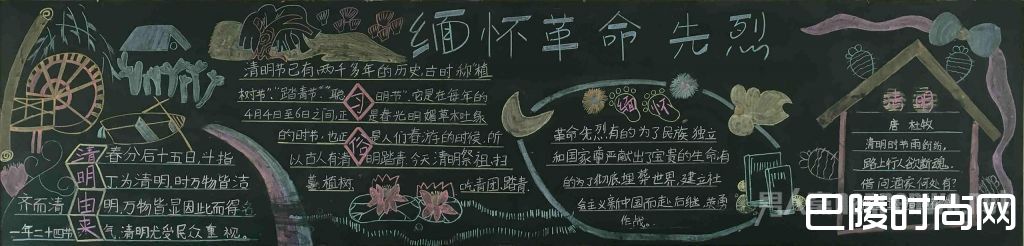 缅怀革命先烈
清明由来
春分后十五日,斗指
丁为清明,时万物皆洁
齐而清明,万物皆显因此而得名
一年二十四节气,清明尤受民众重视。
清明节已有两千多年的历史,古时称植
树节"、"踏青节""聪明节",它是在每年的
4月4日至6日之间,正是春光明媚草木吐绿
的时节,也正是人们春游的时候,所
以古人有清明踏青,今天清明祭祖,扫
墓,植树,吃青团,踏青
习俗
缅怀
革命先烈有的为了民族独立
和国家尊严献出了宝贵的生命,有
的为了彻底埋葬世界,建立社
会主义新中国而赴后继,英勇
作战。
清明
唐 杜牧
清明时节雨纷纷,
路上行人欲断魂。
借问酒家何处有?
巴陵时尚网